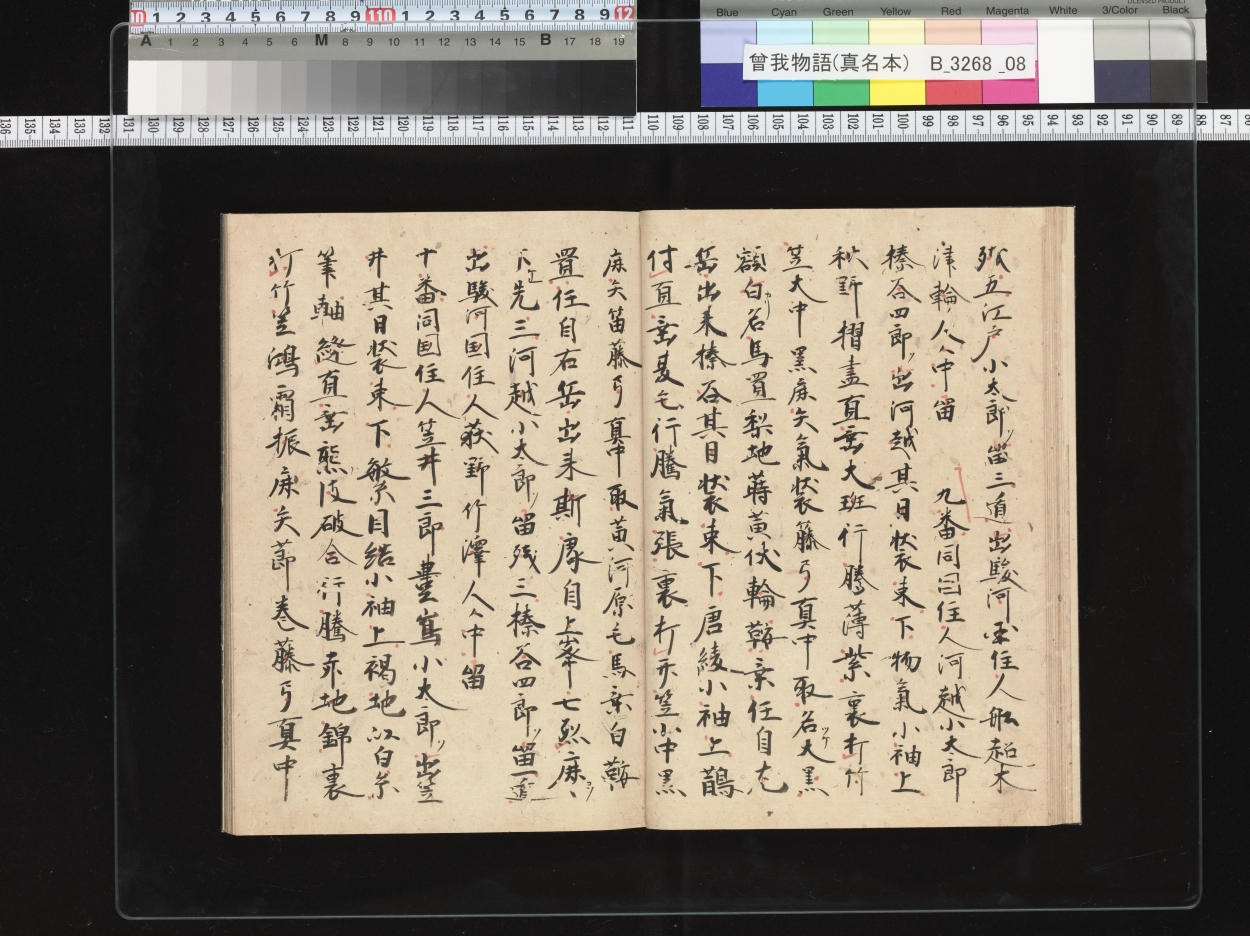 曾我物語(真名本) B_3268_08
Blue Cyan Green Yellow Red Magenta White 3/Color Black
五江戸小太郎留三道出駿河国住人
津輪人々中留 九番同国住人河越小太郎
榛谷四郎出河越其日装束下物氣小袖上
秋野摺盡直垂大班行騰薄紫裏打竹
笠大中黒麻矢氣装藤弓真中取名大黒
額白名馬置梨地蒔黄伏輪鞍乗任自左
岳出来榛谷其日装束下唐綾小袖上鵲
付直垂夏毛行騰氣張裏打平笠小中黒
麻矢笛藤弓真中取黄河原毛馬乗白鞍
置任自右岳出来斯處自上峯七烈麻
下先三河越小太郎留残三榛谷四郎留一道
出駿河国住人荻野竹澤人々中留
十番同国住人笠井三郎豊嶌小太郎出笠
井其日装束下敏糸目結小袖上褐地以白糸
筆軸縫直垂熊皮破合行騰赤地錦裏
打竹笠鴻霜振麻矢節巻藤弓真中